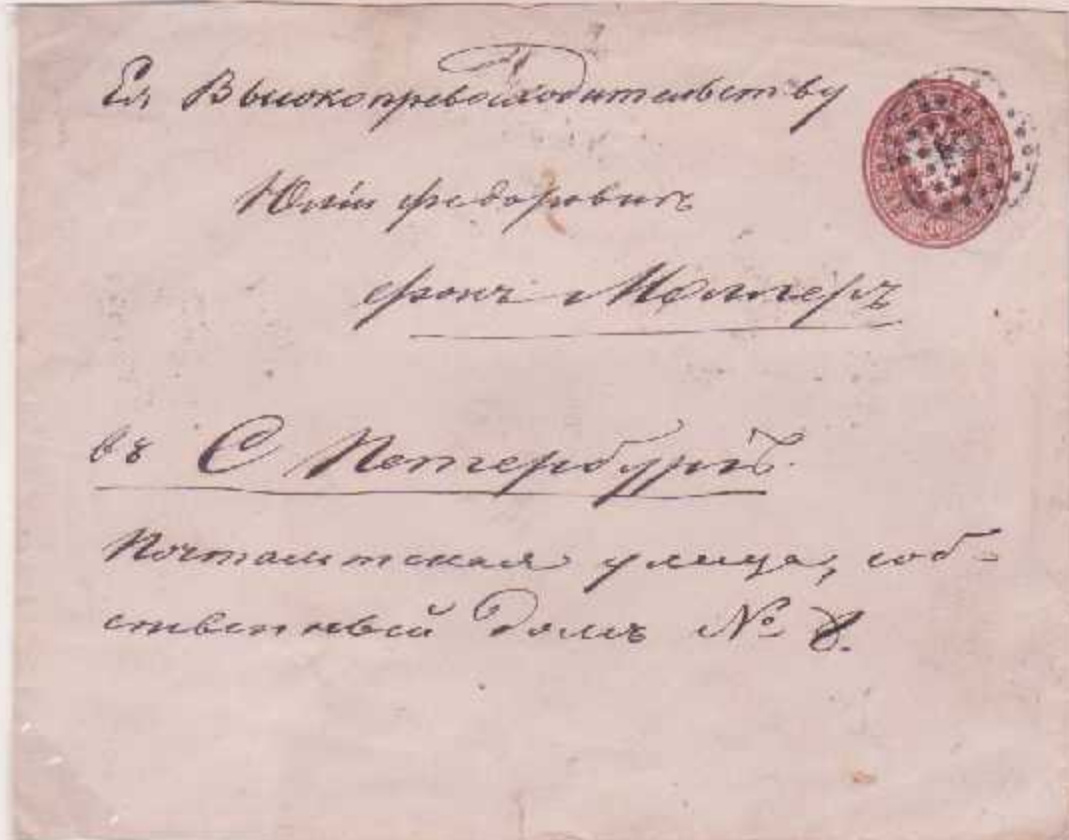 Ея Высокопревосходительству
Юліи Федоровнѣ
фонъ Моллеръ
въ С Петербургѣ.
Почтамтская улица, соб-
ственный домъ № 8.
10